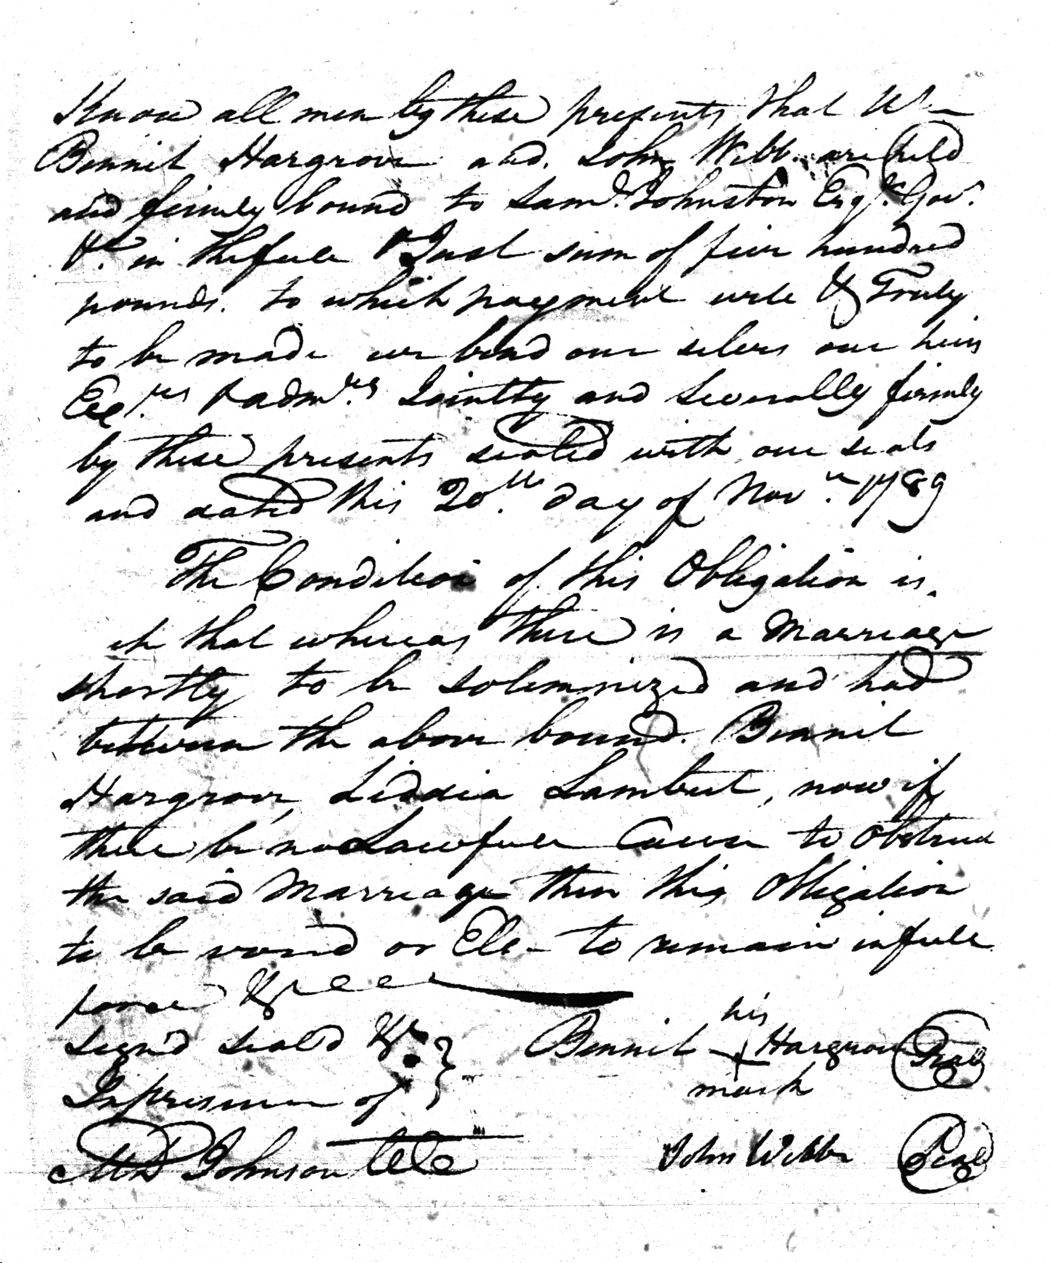 Know all men by these presents that We
Bennit Hargrove and John Webb are held
and firmly bound to Saml. Johnston Esqr. Gov.
&c. in the full & Just sum of five hundred
pounds. to which payment well & Truly
to be made we bind our selves our heirs
Exe.rs & adm.rs Jointly and Severally firmly
by these presents sealed with our seals
and dated this 20.th day of Nov.r 1789
The Condition of this Obligation is
that whereas there is a Marriage
shortly to be solemnized and had
between the above bound. Bennit
Hargrove, Liddia Lambert, now if
there be no Lawfull Cause to Obstruct
the said Marriage then this Obligation
to be void or Else to remain in full
force &c
Sign'd Seal'd &c
In presence of
his
Bennit + Hargrove Seal
mark
Johnson
John Webb Seal